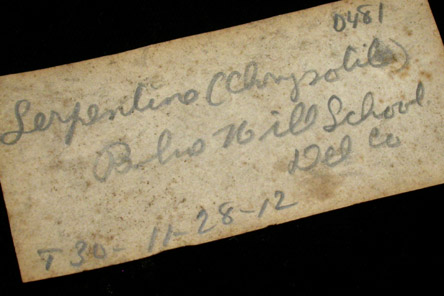 0481
Serpentine (Chrysotile)
Hill School
Del Co
T 30- 11-28-12